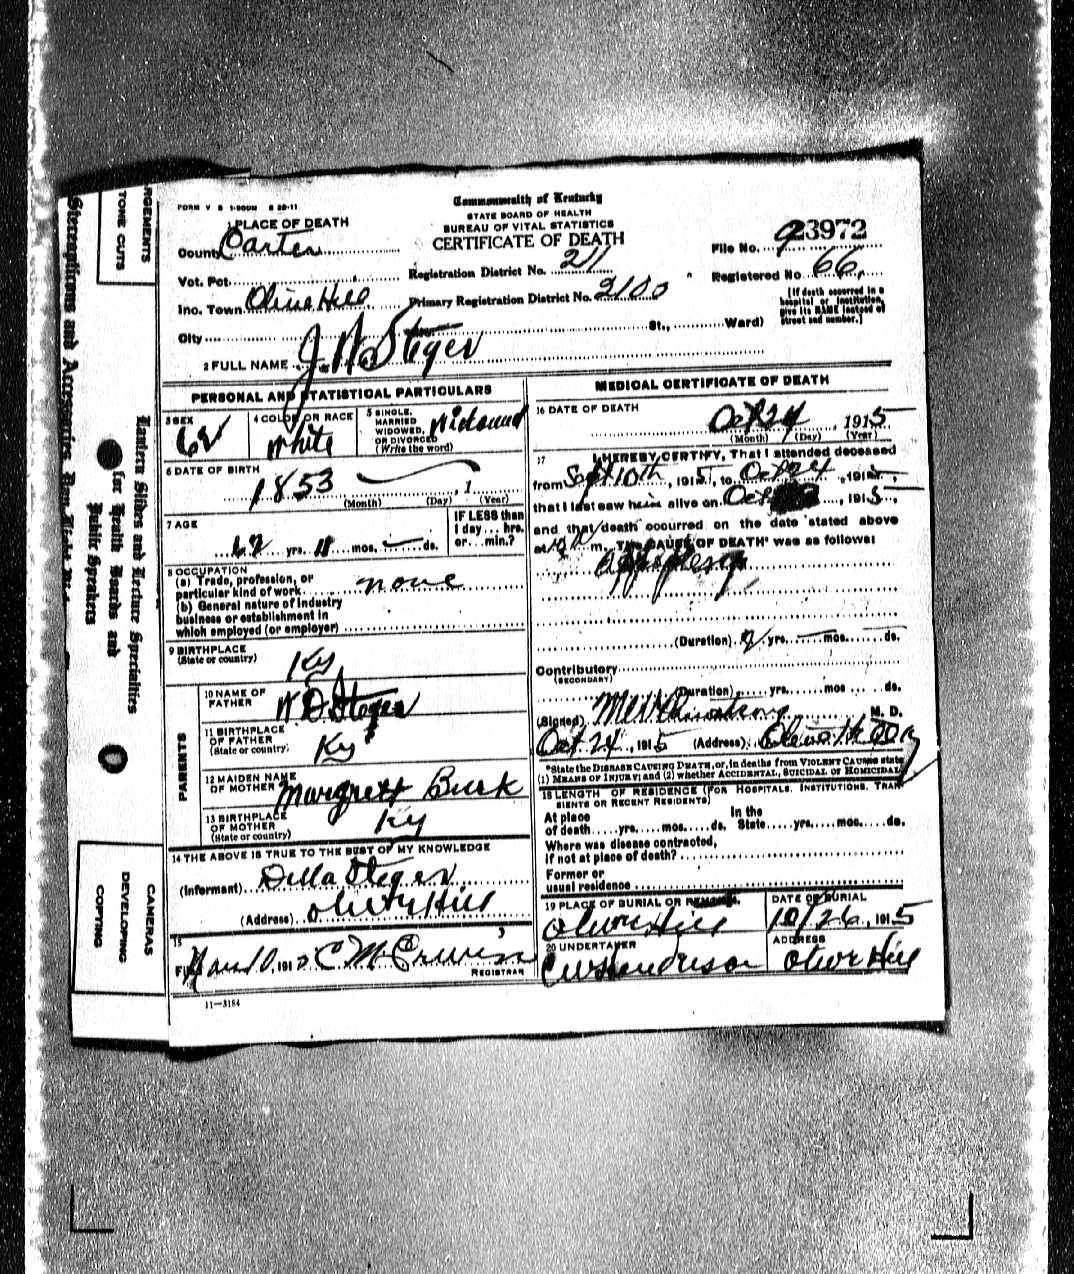 Commonwealth of Kentucky
STATE BOARD OF HEALTH
BUREAU OF VITAL STATISTICS
CERTIFICATE OF DEATH
FORM V S
1 PLACE OF DEATH
County Carter
Vot. Pct.
Inc. Town Olive Hill
City
Registration District No. 21
Primary Registration District No. 2100
St., Ward)
File No. 23972
Registered No 66
[If death occurred in a
hospital or institution,
give its NAME instead of
street and number.]
2 FULL NAME J. W. Steger
PERSONAL AND STATISTICAL PARTICULARS
3 SEX
4 COLOR OR RACE
White
5 SINGLE,
MARRIED
WIDOWED,
OR DIVORCED
(Write the word)
Widowed
6 DATE OF BIRTH
1853 , 1
(Month) (Day) (Year)
7 AGE
62 yrs. mos. ds.
IF LESS than
1 day... hrs.
or... min.?
8 OCCUPATION
(a) Trade, profession, or
particular kind of work none
(b) General nature of industry
business or establishment in
which employed (or employer)
9 BIRTHPLACE
(State or country)
Ky
PARENTS
10 NAME OF
FATHER
W D Steger
11 BIRTHPLACE
OF FATHER
(State or country)
Ky
12 MAIDEN NAME
OF MOTHER
Margrett Burk
13 BIRTHPLACE
OF MOTHER
(State or country)
Ky
14 THE ABOVE IS TRUE TO THE BEST OF MY KNOWLEDGE
(Informant) Della Steger
(Address) Olive Hill
15
191
REGISTRAR
11—3184
MEDICAL CERTIFICATE OF DEATH
16 DATE OF DEATH
Oct 24 , 1915
(Month) (Day) (Year)
17 I HEREBY CERTIFY, That I attended deceased
from Sept 10th , 1915, to Oct 24 , 1915,
that I last saw him alive on Oct , 1915,
and that death occurred on the date stated above
at m. The CAUSE OF DEATH* was as follows:
(Duration) yrs. mos. ds.
Contributory
(SECONDARY)
(Duration) yrs. mos ds.
(Signed) M. D.
Oct. 24, 1915 (Address)
*State the DISEASE CAUSING DEATH, or, in deaths from VIOLENT CAUSES state
(1) MEANS OF INJURY; and (2) whether ACCIDENTAL, SUICIDAL or HOMICIDAL
18 LENGTH OF RESIDENCE (FOR HOSPITALS, INSTITUTIONS, TRAN
SIENTS OR RECENT RESIDENTS)
At place In the
of death yrs. mos. ds. State yrs. mos. ds.
Where was disease contracted,
if not at place of death?
Former or
usual residence
19 PLACE OF BURIAL OR REMOVAL
Olive Hill
DATE OF BURIAL
10/26, 1915
20 UNDERTAKER
ADDRESS
Olive Hill
ARGEMENTS
TONE CUTS
Stereopticons and Accessories
Lantern Slides and Lecture Specialties
for Health Boards and
Public Speakers
CAMERAS
DEVELOPING
COPYING